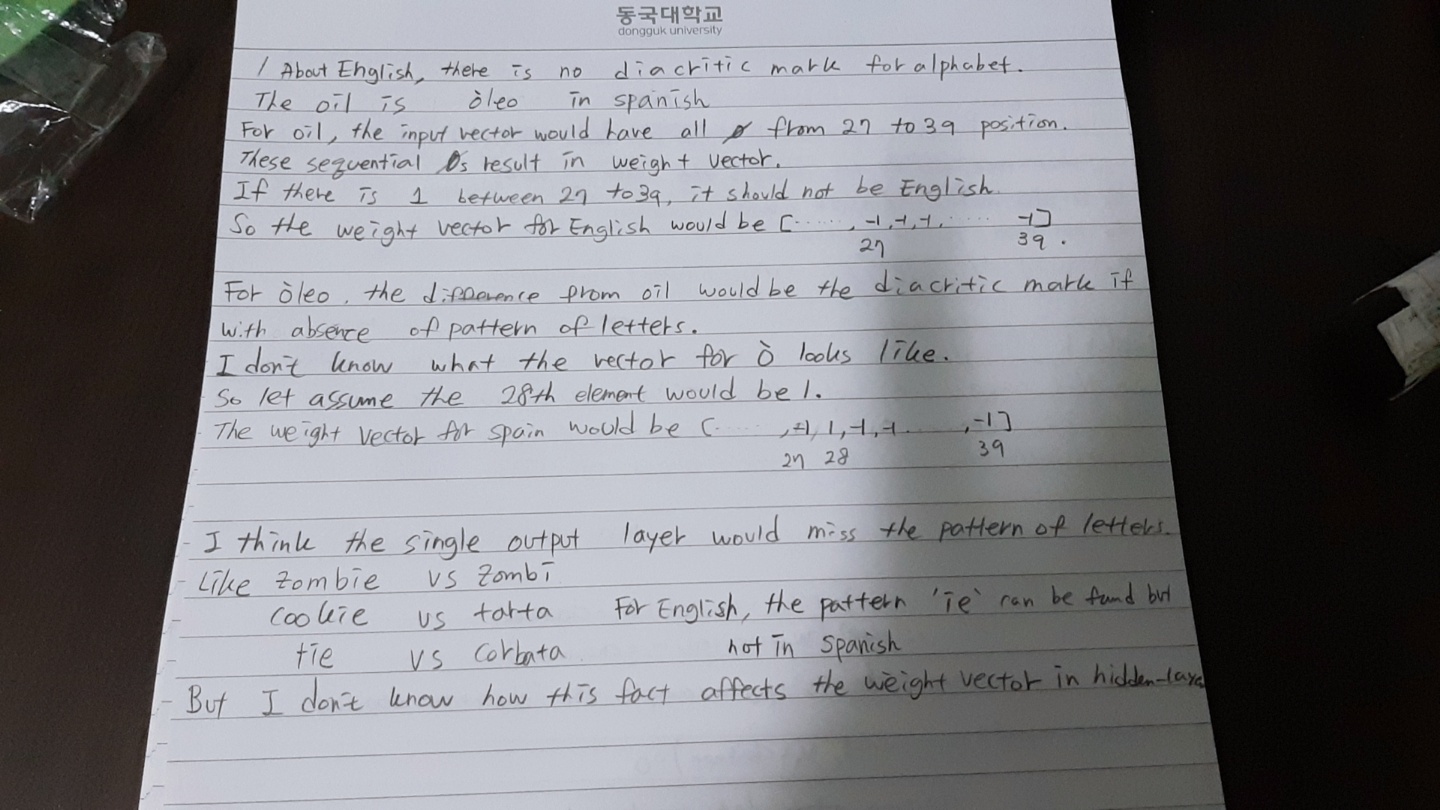 동국대학교
dongguk university
/ About English, there is no diacritic mark for alphabet.
The oil is òleo in spanish
For oil, the input vector would have all 0 from 27 to 39 position.
These sequential 0s result in weight vector.
If there is 1 between 27 to 39, it should not be English
So the weight vector for English would be [......, -1, -1, -1, ...... -1]
27 39.
For òleo, the difference from oil would be the diacritic mark if
with absence of pattern of letters.
I don't know what the vector for ò looks like.
So let assume the 28th element would be 1.
The weight vector for spain would be [......, -1, 1, -1, -1 ......, -1]
27 28 39
I think the single output layer would miss the pattern of letters.
Like zombie vs zombi
cookie vs tarta For English, the pattern 'ie' can be fund but
tie vs corbata not in Spanish
But I don't know how this fact affects the weight vector in hidden-laye